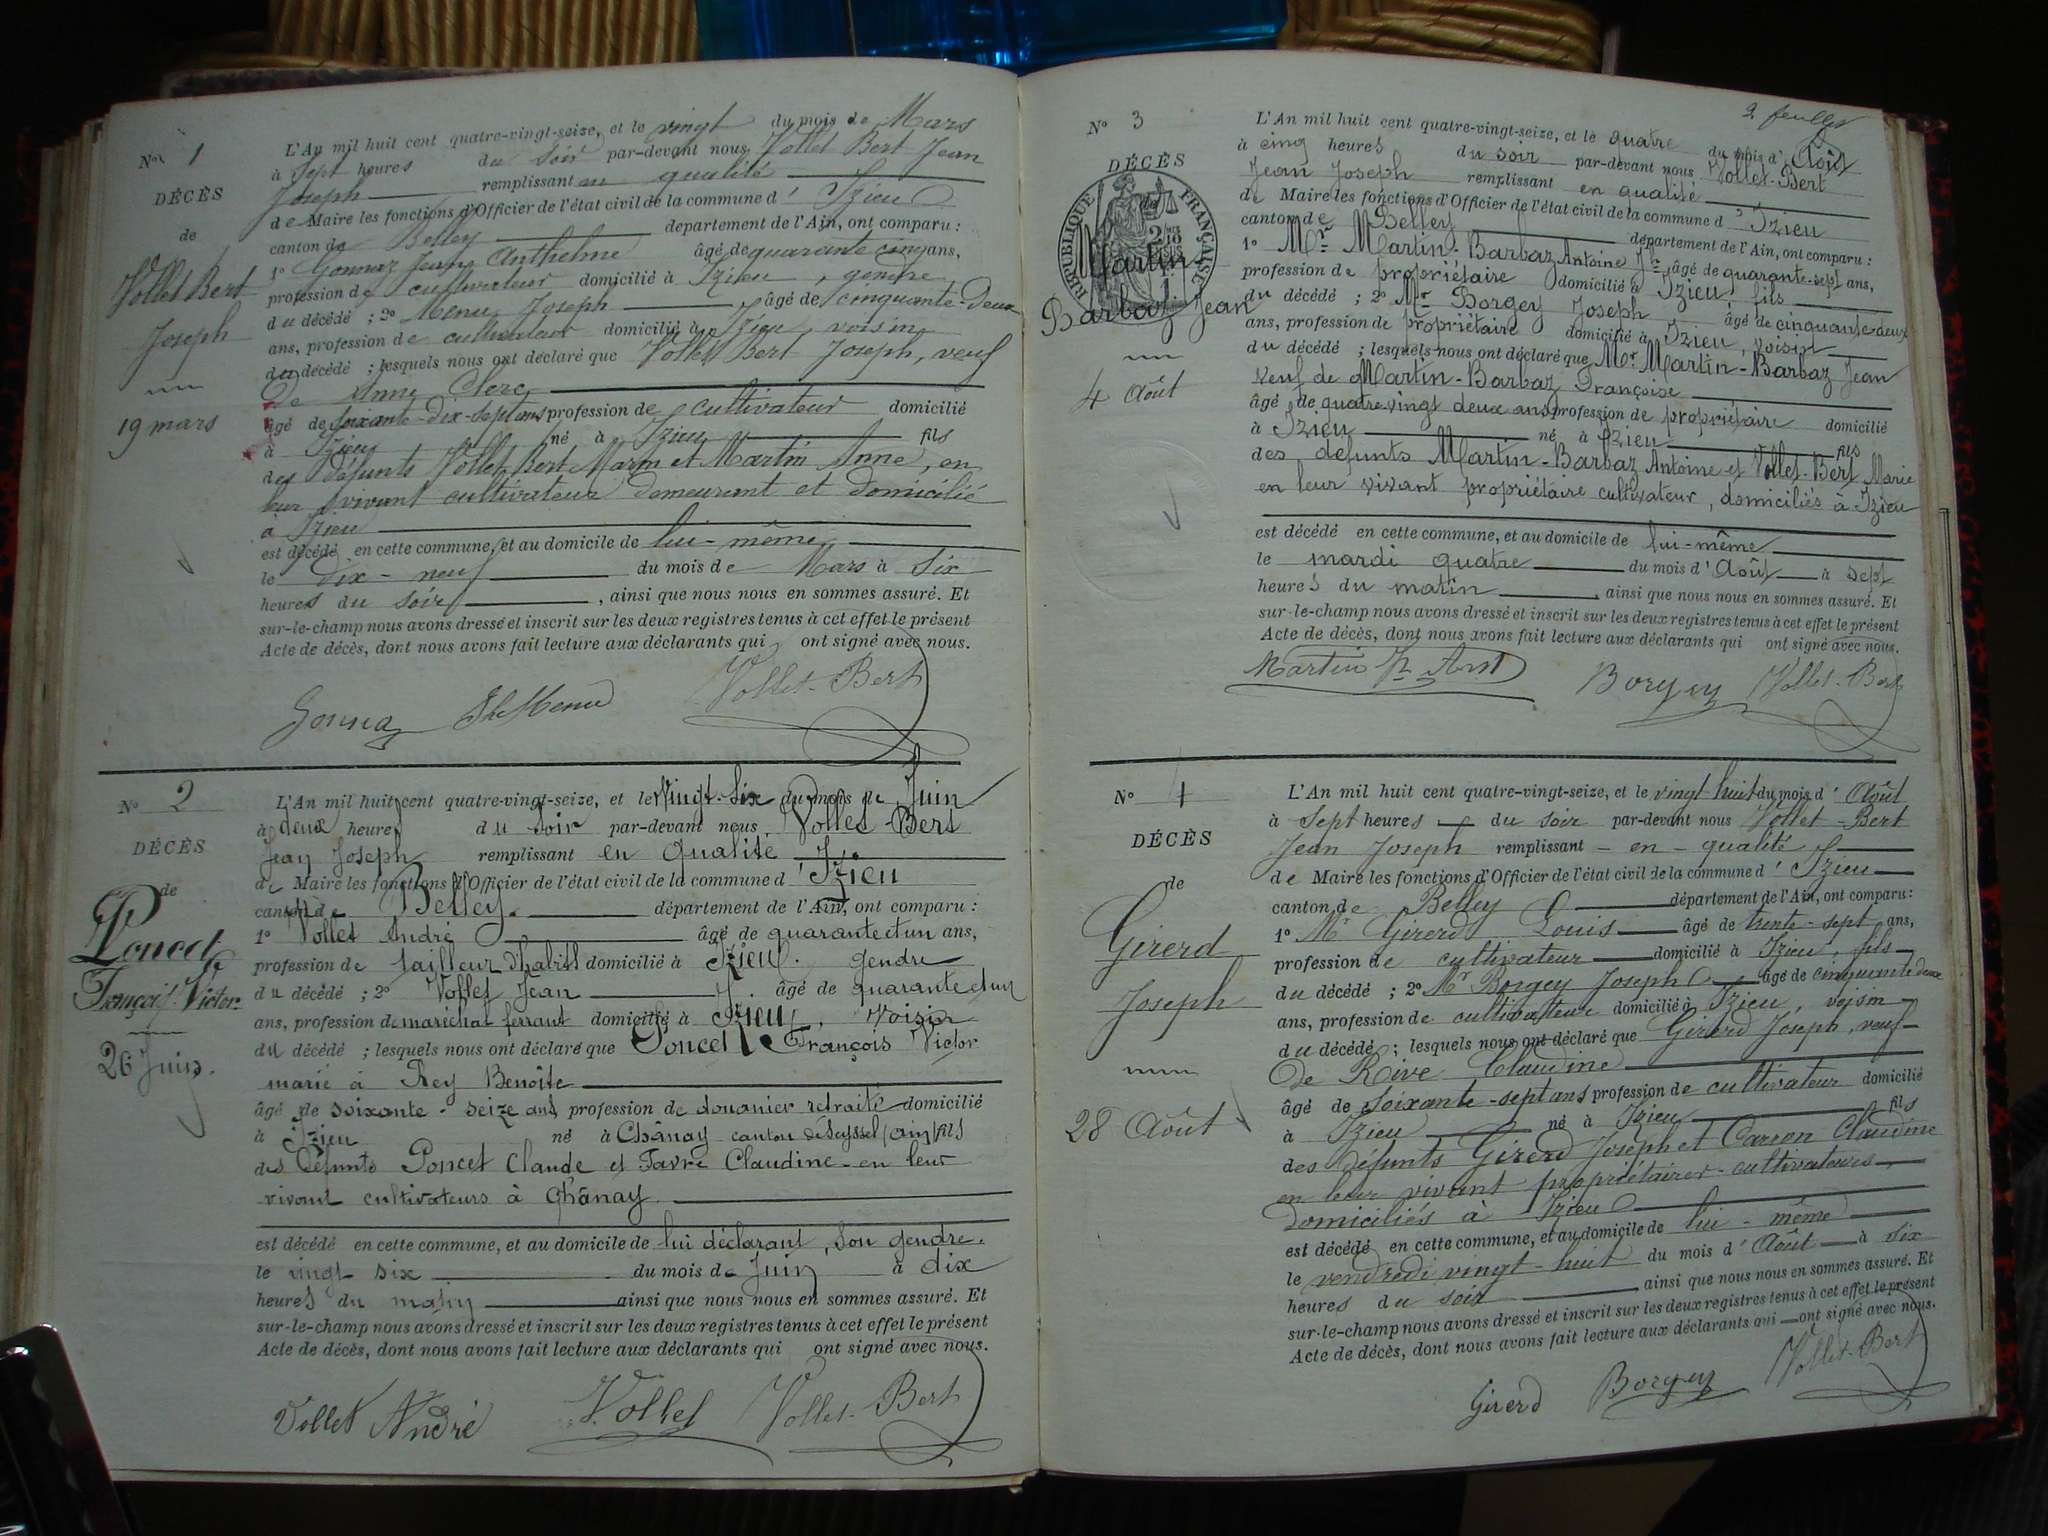 N° 1
DÉCÈS
de
Vollet Bert
Joseph
19 mars
L'An mil huit cent quatre-vingt-seize, et le vingt du mois de Mars
à Sept heures du soir par-devant nous Vollet Bert Jean
Joseph remplissant en qualité
de Maire les fonctions d'Officier de l'état civil de la commune d' Izieu
canton de Belley département de l'Ain, ont comparu :
1° Gonnaz Jean Anthelme âgé de quarante cinq ans,
profession de cultivateur domicilié à Izieu, gendre
du décédé ; 2° Menu Joseph âgé de cinquante-deux
ans, profession de cultivateur domicilié à Izieu, voisin
du décédé ; lesquels nous ont déclaré que Vollet Bert Joseph, veuf
de Anne Clerc
âgé de soixante-dix-sept ans profession de cultivateur domicilié
à Izieu né à Izieu fils
des défunts Vollet Bert Marin et Martin Anne, en
leur vivant cultivateurs demeurant et domicilié
à Izieu
est décédé en cette commune, et au domicile de lui-même
le dix-neuf du mois de Mars à six
heures du soir, ainsi que nous nous en sommes assuré. Et
sur-le-champ nous avons dressé et inscrit sur les deux registres tenus à cet effet le présent
Acte de décès, dont nous avons fait lecture aux déclarants qui ont signé avec nous.
Gonnaz Jh Menu Vollet-Bert
N° 2
DÉCÈS
de
Poncet
François Victor
26 Juin.
L'An mil huit cent quatre-vingt-seize, et le vingt-six du mois de Juin
à deux heures du soir par-devant nous Vollet-Bert
Jean Joseph remplissant en qualité
de Maire les fonctions d'Officier de l'état civil de la commune d' Izieu
canton de Belley. département de l'Ain, ont comparu :
1° Vollet André âgé de quarante et un ans,
profession de tailleur d'habits domicilié à Izieu. gendre
du décédé ; 2° Vollet Jean âgé de quarante et un
ans, profession de maréchal ferrant domicilié à Izieu, voisin
du décédé ; lesquels nous ont déclaré que Poncet François Victor
marié à Rey Benoîte
âgé de soixante-seize ans profession de douanier retraité domicilié
à Izieu né à Chânay canton de Seyssel (ain) fils
des défunts Poncet Claude et Favre Claudine en leur
vivant cultivateurs à Chânay
est décédé en cette commune, et au domicile de lui déclarant, son gendre.
le vingt six du mois de Juin à dix
heures du matin ainsi que nous nous en sommes assuré. Et
sur-le-champ nous avons dressé et inscrit sur les deux registres tenus à cet effet le présent
Acte de décès, dont nous avons fait lecture aux déclarants qui ont signé avec nous.
Vollet André J. Vollet Vollet-Bert
2 feuillet
N° 3
DÉCÈS
de
RÉPUBLIQUE FRANÇAISE
Martin
Barbaz Jean
4 Août
L'An mil huit cent quatre-vingt-seize, et le quatre du mois d' Août
à cinq heures du soir par-devant nous Vollet-Bert
Jean Joseph remplissant en qualité
de Maire les fonctions d'Officier de l'état civil de la commune d' Izieu
canton de Belley département de l'Ain, ont comparu :
1° Mr Martin-Barbaz Antoine Jn âgé de quarante-sept ans,
profession de propriétaire domicilié à Izieu, fils
du décédé ; 2° Mr Borgey Joseph âgé de cinquante deux
ans, profession de propriétaire domicilié à Izieu, voisin
du décédé ; lesquels nous ont déclaré que Mr Martin-Barbaz Jean
veuf de Martin-Barbaz Françoise
âgé de quatre-vingt deux ans profession de propriétaire domicilié
à Izieu né à Izieu fils
des défunts Martin-Barbaz Antoine et Vollet-Bert Marie
en leur vivant propriétaire cultivateur, domiciliés à Izieu
est décédé en cette commune, et au domicile de lui-même
le mardi quatre du mois d' Août à sept
heures du matin, ainsi que nous nous en sommes assuré. Et
sur-le-champ nous avons dressé et inscrit sur les deux registres tenus à cet effet le présent
Acte de décès, dont nous avons fait lecture aux déclarants qui ont signé avec nous.
Martin Jn Ant Borgey Vollet-Bert
N° 4
DÉCÈS
de
Girerd
Joseph
28 Août
L'An mil huit cent quatre-vingt-seize, et le vingt huit du mois d' Août
à sept heures du soir par-devant nous Vollet-Bert
Jean Joseph remplissant en qualité
de Maire les fonctions d'Officier de l'état civil de la commune d' Izieu
canton de Belley département de l'Ain, ont comparu :
1° Mr Girerd Louis âgé de trente-sept ans,
profession de cultivateur domicilié à Izieu, fils
du décédé ; 2° Mr Borgey Joseph âgé de cinquante deux
ans, profession de cultivateur domicilié à Izieu, voisin
du décédé ; lesquels nous ont déclaré que Girerd Joseph, veuf
de Rive Claudine
âgé de soixante-sept ans profession de cultivateur domicilié
à Izieu né à Izieu fils
des défunts Girerd Joseph et Carron Claudine
en leur vivant propriétaires-cultivateurs
domiciliés à Izieu
est décédé en cette commune, et au domicile de lui-même
le vendredi vingt-huit du mois d' Août à six
heures du soir ainsi que nous nous en sommes assuré. Et
sur-le-champ nous avons dressé et inscrit sur les deux registres tenus à cet effet le présent
Acte de décès, dont nous avons fait lecture aux déclarants qui ont signé avec nous.
Girerd Borgey Vollet-Bert